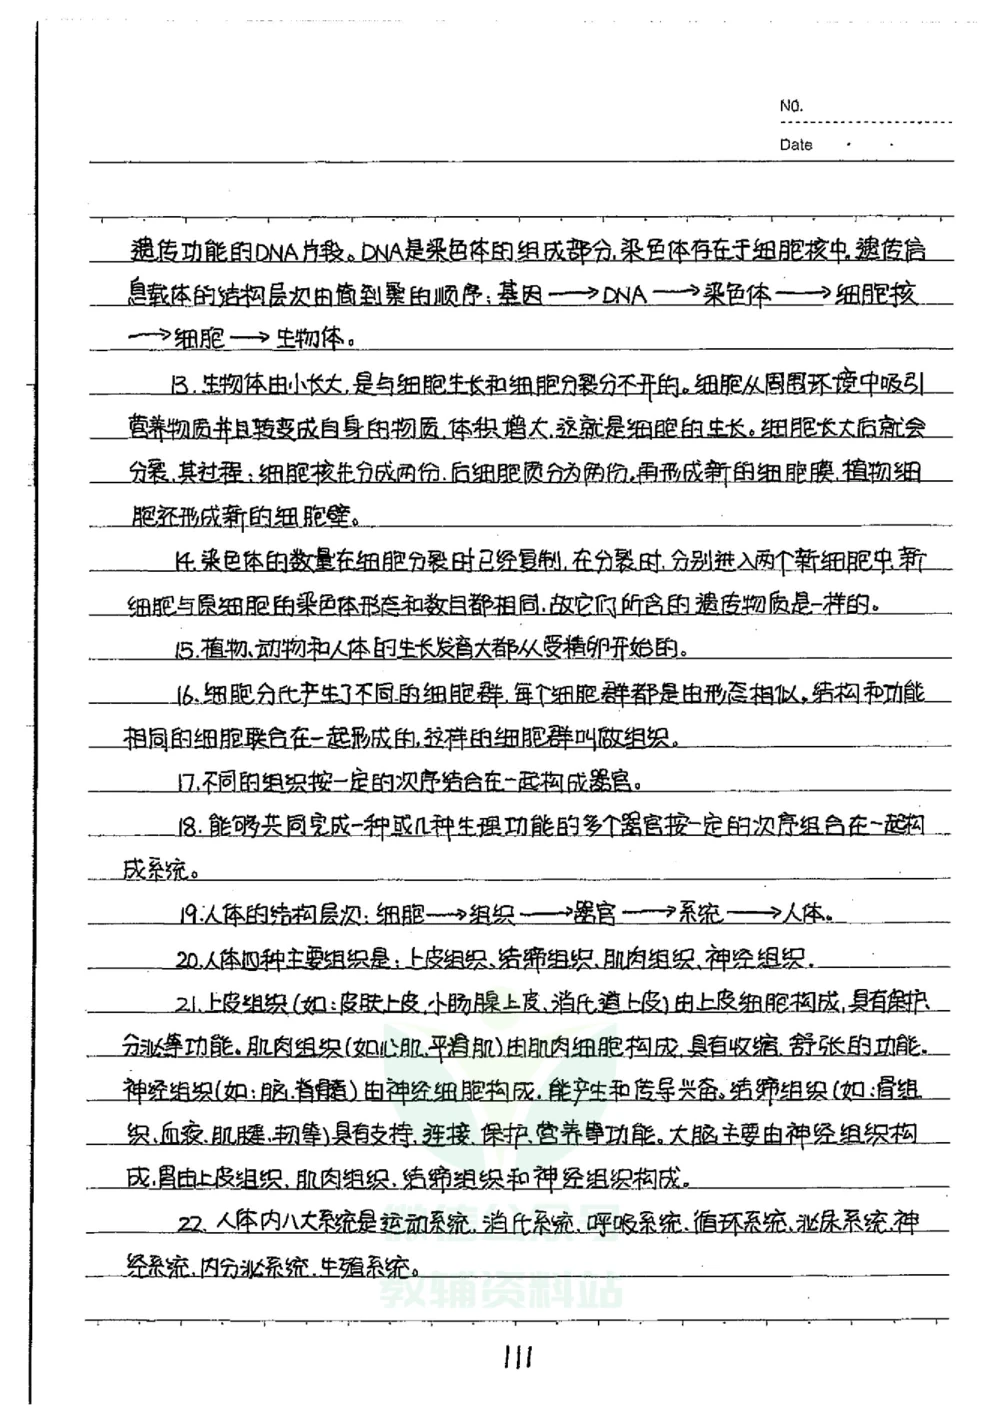 No.
Date
遗传功能的DNA片段。DNA是染色体的组成部分,染色体存在于细胞核中,遗传信
息载体的结构层次由简到繁的顺序:基因→DNA→染色体→细胞核
→细胞→生物体。
13.生物体由小长大,是与细胞生长和细胞分裂分不开的。细胞从周围环境中吸引
营养物质并且转变成自身的物质,体积增大,这就是细胞的生长。细胞长大后就会
分裂,其过程:细胞核先分成两份,后细胞质分为两份,再形成新的细胞膜,植物细
胞还形成新的细胞壁。
14.染色体的数量在细胞分裂时已经复制,在分裂时,分别进入两个新细胞中,新
细胞与原细胞的染色体形态和数目都相同,故它们所含的遗传物质是一样的。
15.植物、动物和人体的生长发育大都从受精卵开始的。
16.细胞分化产生了不同的细胞群,每个细胞群都是由形态相似,结构和功能
相同的细胞联合在一起形成的,这样的细胞群叫做组织。
17.不同的组织按一定的次序结合在一起构成器官。
18.能够共同完成一种或几种生理功能的多个器官按一定的次序组合在一起构
成系统。
19.人体的结构层次:细胞→组织→器官→系统→人体。
20.人体四种主要组织是:上皮组织、结缔组织、肌肉组织、神经组织.
21.上皮组织(如:皮肤上皮、小肠腺上皮、消化道上皮)由上皮细胞构成,具有保护、
分泌等功能。肌肉组织(如心肌、平滑肌)由肌肉细胞构成,具有收缩、舒张的功能。
神经组织(如:脑、脊髓)由神经细胞构成,能产生和传导兴奋。结缔组织(如:骨组
织、血液、肌腱、韧带)具有支持、连接、保护、营养等功能。大脑主要由神经组织构
成,胃由上皮组织、肌肉组织、结缔组织和神经组织构成。
22.人体内八大系统是运动系统、消化系统、呼吸系统、循环系统、泌尿系统、神
经系统、内分泌系统、生殖系统。
微信公众号
教辅资料站
111